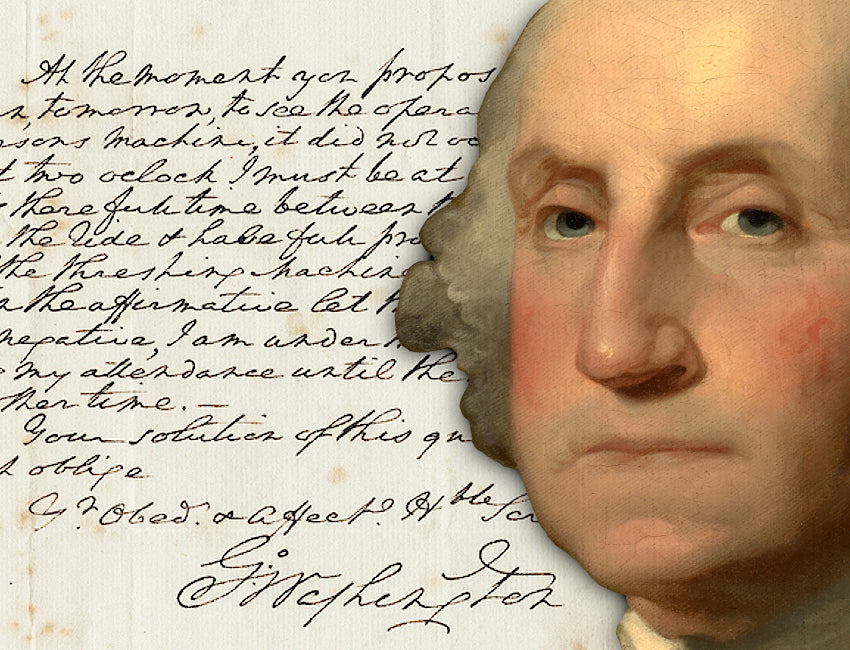 At the moment you propos
n, tomorrow, to see the opera
rsons machine, it did not oc
t two oclock I must be at
s there full time between t
the Ride & have full pro
the threshing machine
n the affirmative let t
negative, I am under
my attendance until the
ther time. —
Your solution of this qu
t oblige
Yr. Obed. & Affect.e Hble Ser
G:Washington